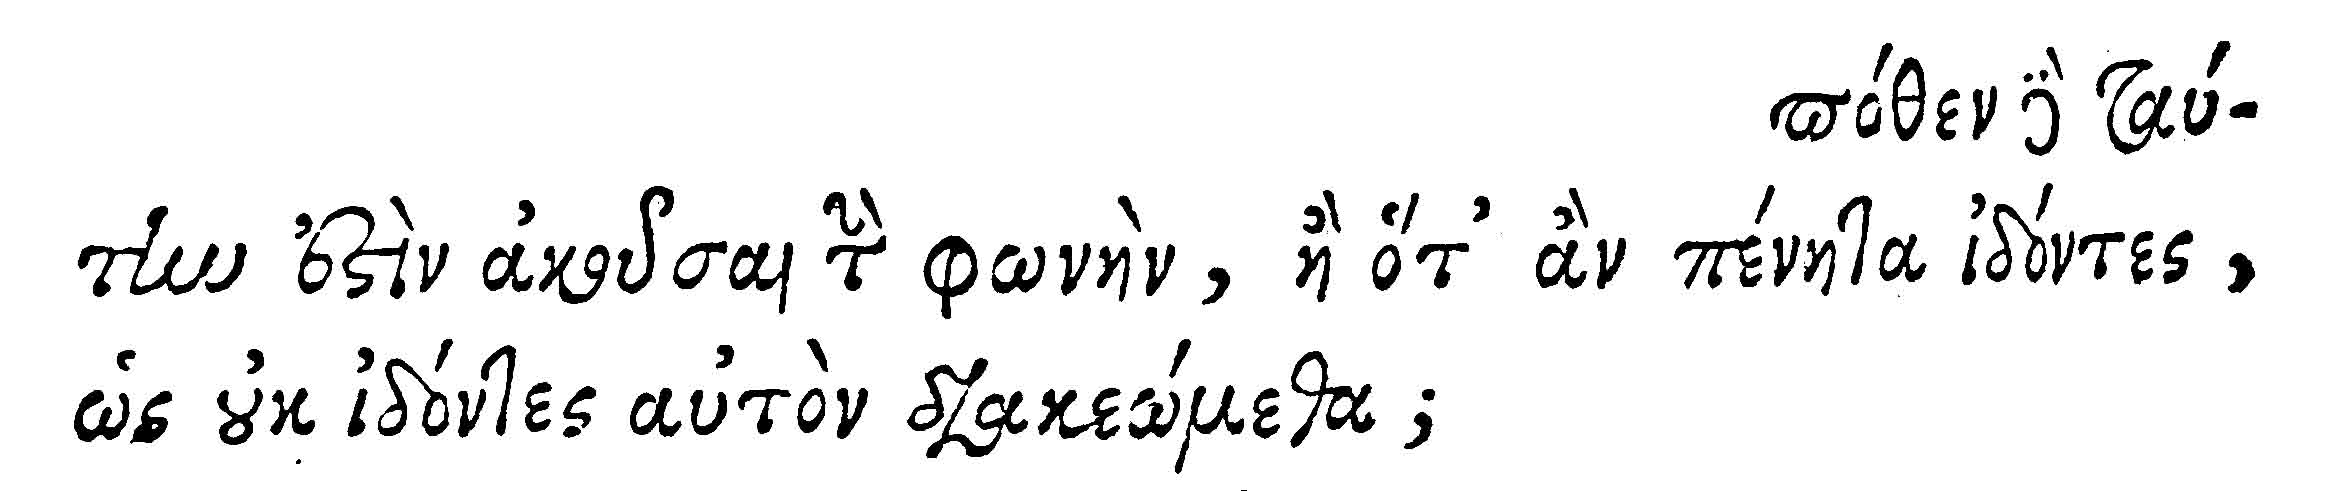 πόθεν δὲ ταύ-
την ἐστὶν ἀκοῦσαι τὴν φωνὴν, ἢ ὅτ’ ἂν πένητα ἰδόντες,
ὡς οὐκ ἰδόντες αὐτὸν διακεώμεθα;